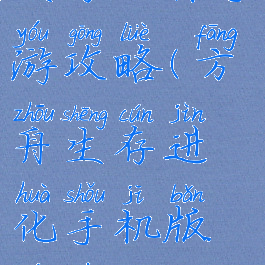 yóu gōng lüè fāng
游攻略(方
zhōu shēng cún jìn
舟生存进
huà shǒu jī bǎn
化手机版